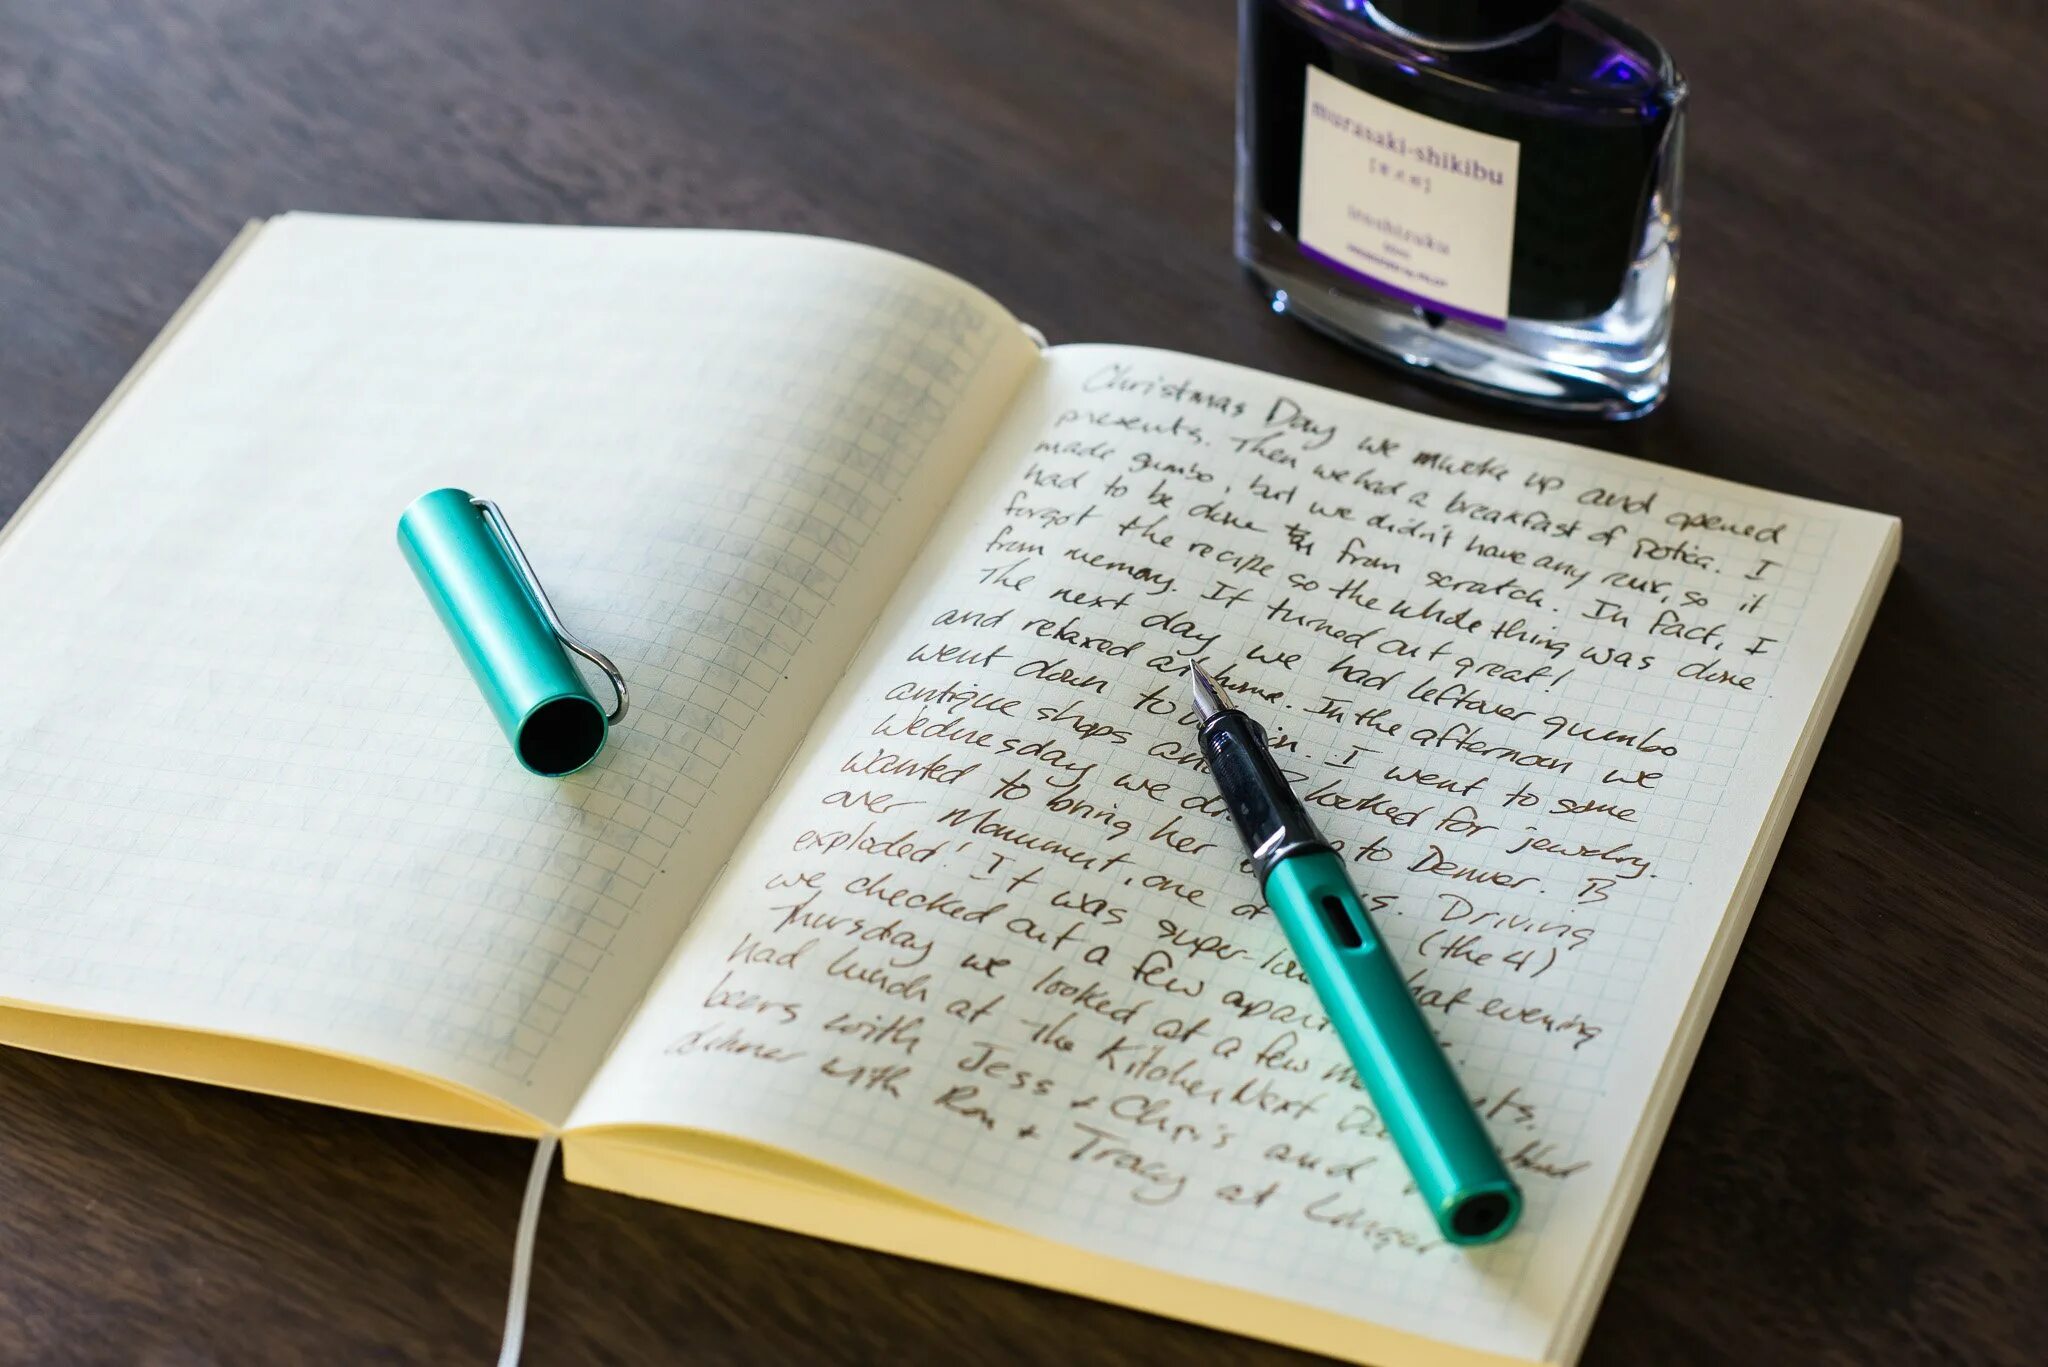 murasaki-shikibu
[紫式部]
iroshizuku
Christmas Day we woke up and opened
presents. Then we had a breakfast of Potica. I
made gumbo, but we didn't have any roux, so it
had to be done from scratch. In fact, I
forgot the recipe so the whole thing was done
from memory. It turned out great!
The next day we had leftover gumbo
and relaxed at home. In the afternoon we
went down to. I went to some
antique shops and looked for jewelry.
Wednesday we to Denver. B
wanted to bring her. Driving
over Monument, one of (the 4)
exploded! It was super- that evening
we checked out a few
Thursday we looked at a few
had lunch at The Kitchen Next
beers with Jess + Chris and
dinner with Ron + Tracy at